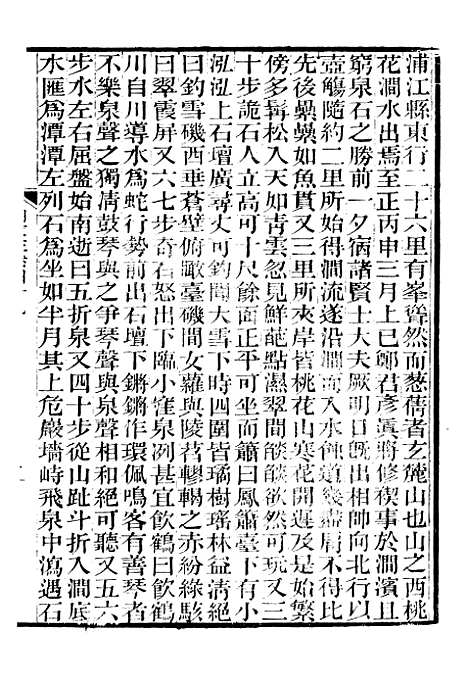 浦江縣東行二十六里有峯聳然而葱蒨者玄麓山也山之西桃
花澗水出焉至正丙申三月上巳鄭君彥眞將修禊事於澗濱且
窮泉石之勝前一夕宿諸賢士大夫厥明日旣出相帥向北行以
壺觴隨約二里所始得澗流遂沿澗而入水蝕道幾盡肩不得比
先後纍纍如魚貫又三里所夾岸皆桃花山寒花開遲及是始繁
傍多髯松入天如靑雲忽見鮮葩點濕翠間燄燄欲然可玩又三
十步詭石人立高可十尺餘面正平可坐而簫曰鳳簫臺下有小
泓泓上石壇廣㝷丈可釣聞大雪下時四圍皆璚樹瑶林益淸絕
曰釣雪磯西垂蒼壁俯瞰臺磯間女蘿與陵苕轇轕之赤紛綠駭
曰翠霞屏又六七步奇石怒出下臨小窪泉冽甚宜飲鶴曰飲鶴
川自川導水爲蛇行勢前出石壇下鏘鏘作環佩鳴客有善琴者
不樂泉聲之獨淸鼓琴與之爭琴聲與泉聲相和絕可聽又五六
步水左右屈盤始南逝曰五折泉又四十步從山趾斗折入澗底
水匯爲潭潭左列石爲坐如半月其上危巖墻峙飛泉中瀉遇石